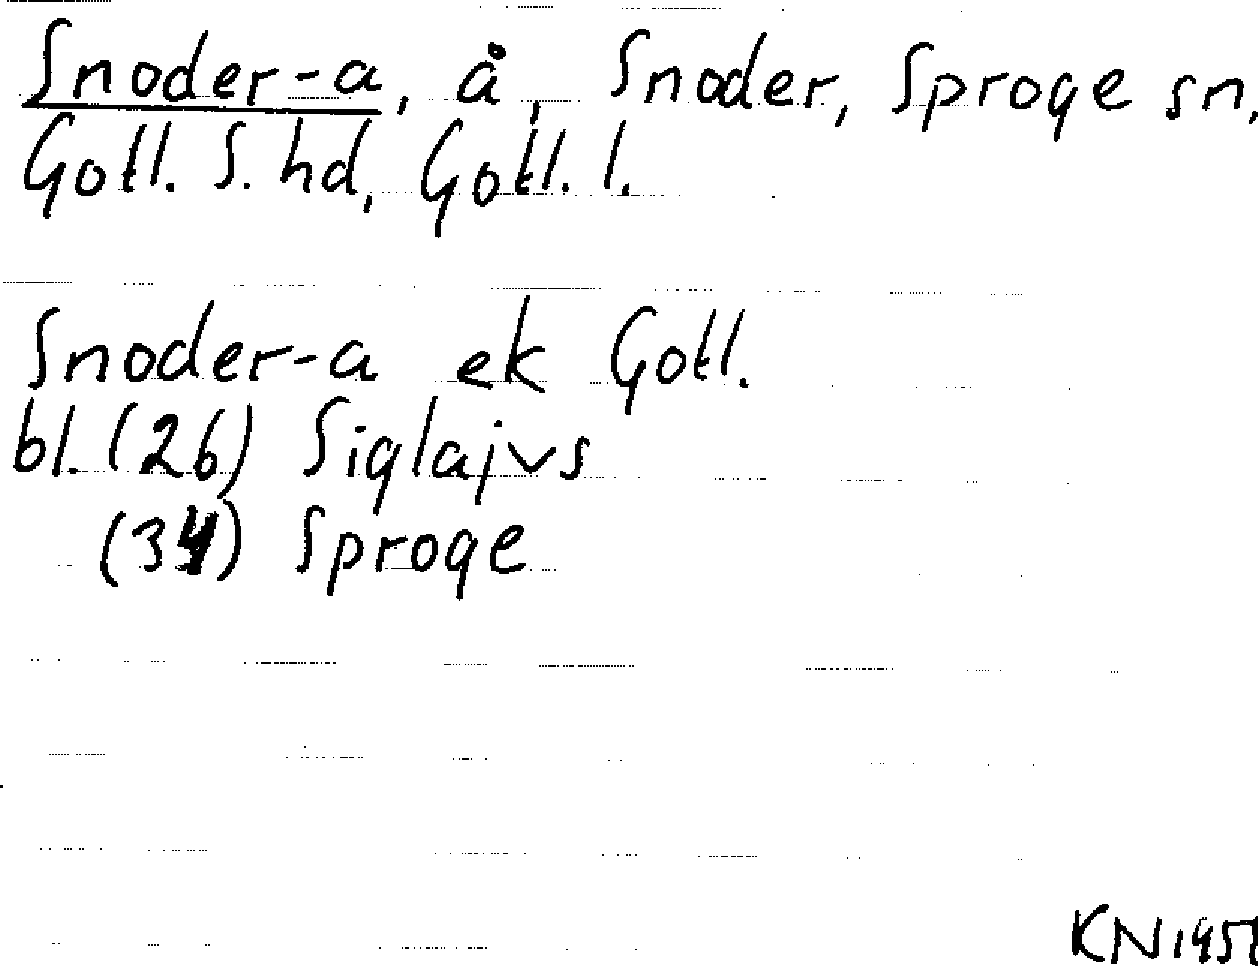 Snoder-a, å, Snoder, Sproge sn,
Gotl. S. hd, Gotl. l.
Snoder-a ek Gotl.
bl. (26) Siglajvs
(34) Sproge
KN